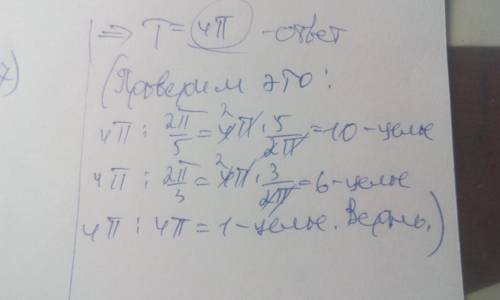 7)
|⇒ T = 4π - ответ
(Проверим это:
4π : 2π/5 = 4π · 5/2π = 10 - целое
4π : 2π/3 = 4π · 3/2π = 6 - целое
4π : 4π = 1 - целое. Верно.)